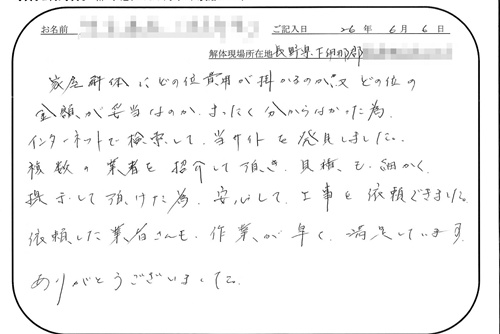 お名前 ご記入日 26年 6月 6日
解体現場所在地 長野県下伊那郡
家屋解体にどの位費用が掛かるのか又どの位の
金額が妥当なのか、まったく分からなかった為、
インターネットで検索して、当サイトを発見しました。
複数の業者を紹介して頂き、見積も細かく
提示して頂けた為、安心して、工事を依頼できました。
依頼した業者さんも、作業が早く、満足しています。
ありがとうございました。